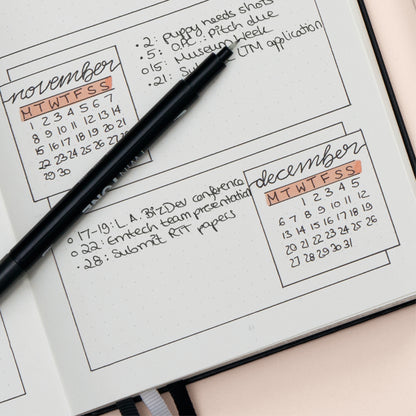 november
M T W T F S S
1 2 3 4 5 6 7
8 9 10 11 12 13 14
15 16 17 18 19 20 21
22 23 24 25 26 27 28
29 30
• 2: puppy needs shots
• 5: OPC pitch due
o 15: Museum Week
• 21: LTM application
december
M T W T F S S
1 2 3 4 5
6 7 8 9 10 11 12
13 14 15 16 17 18 19
20 21 22 23 24 25 26
27 28 29 30 31
o 17-19: L.A. BizDev conference
o 22: Emtech team presentation
• 28: Submit RIT papers